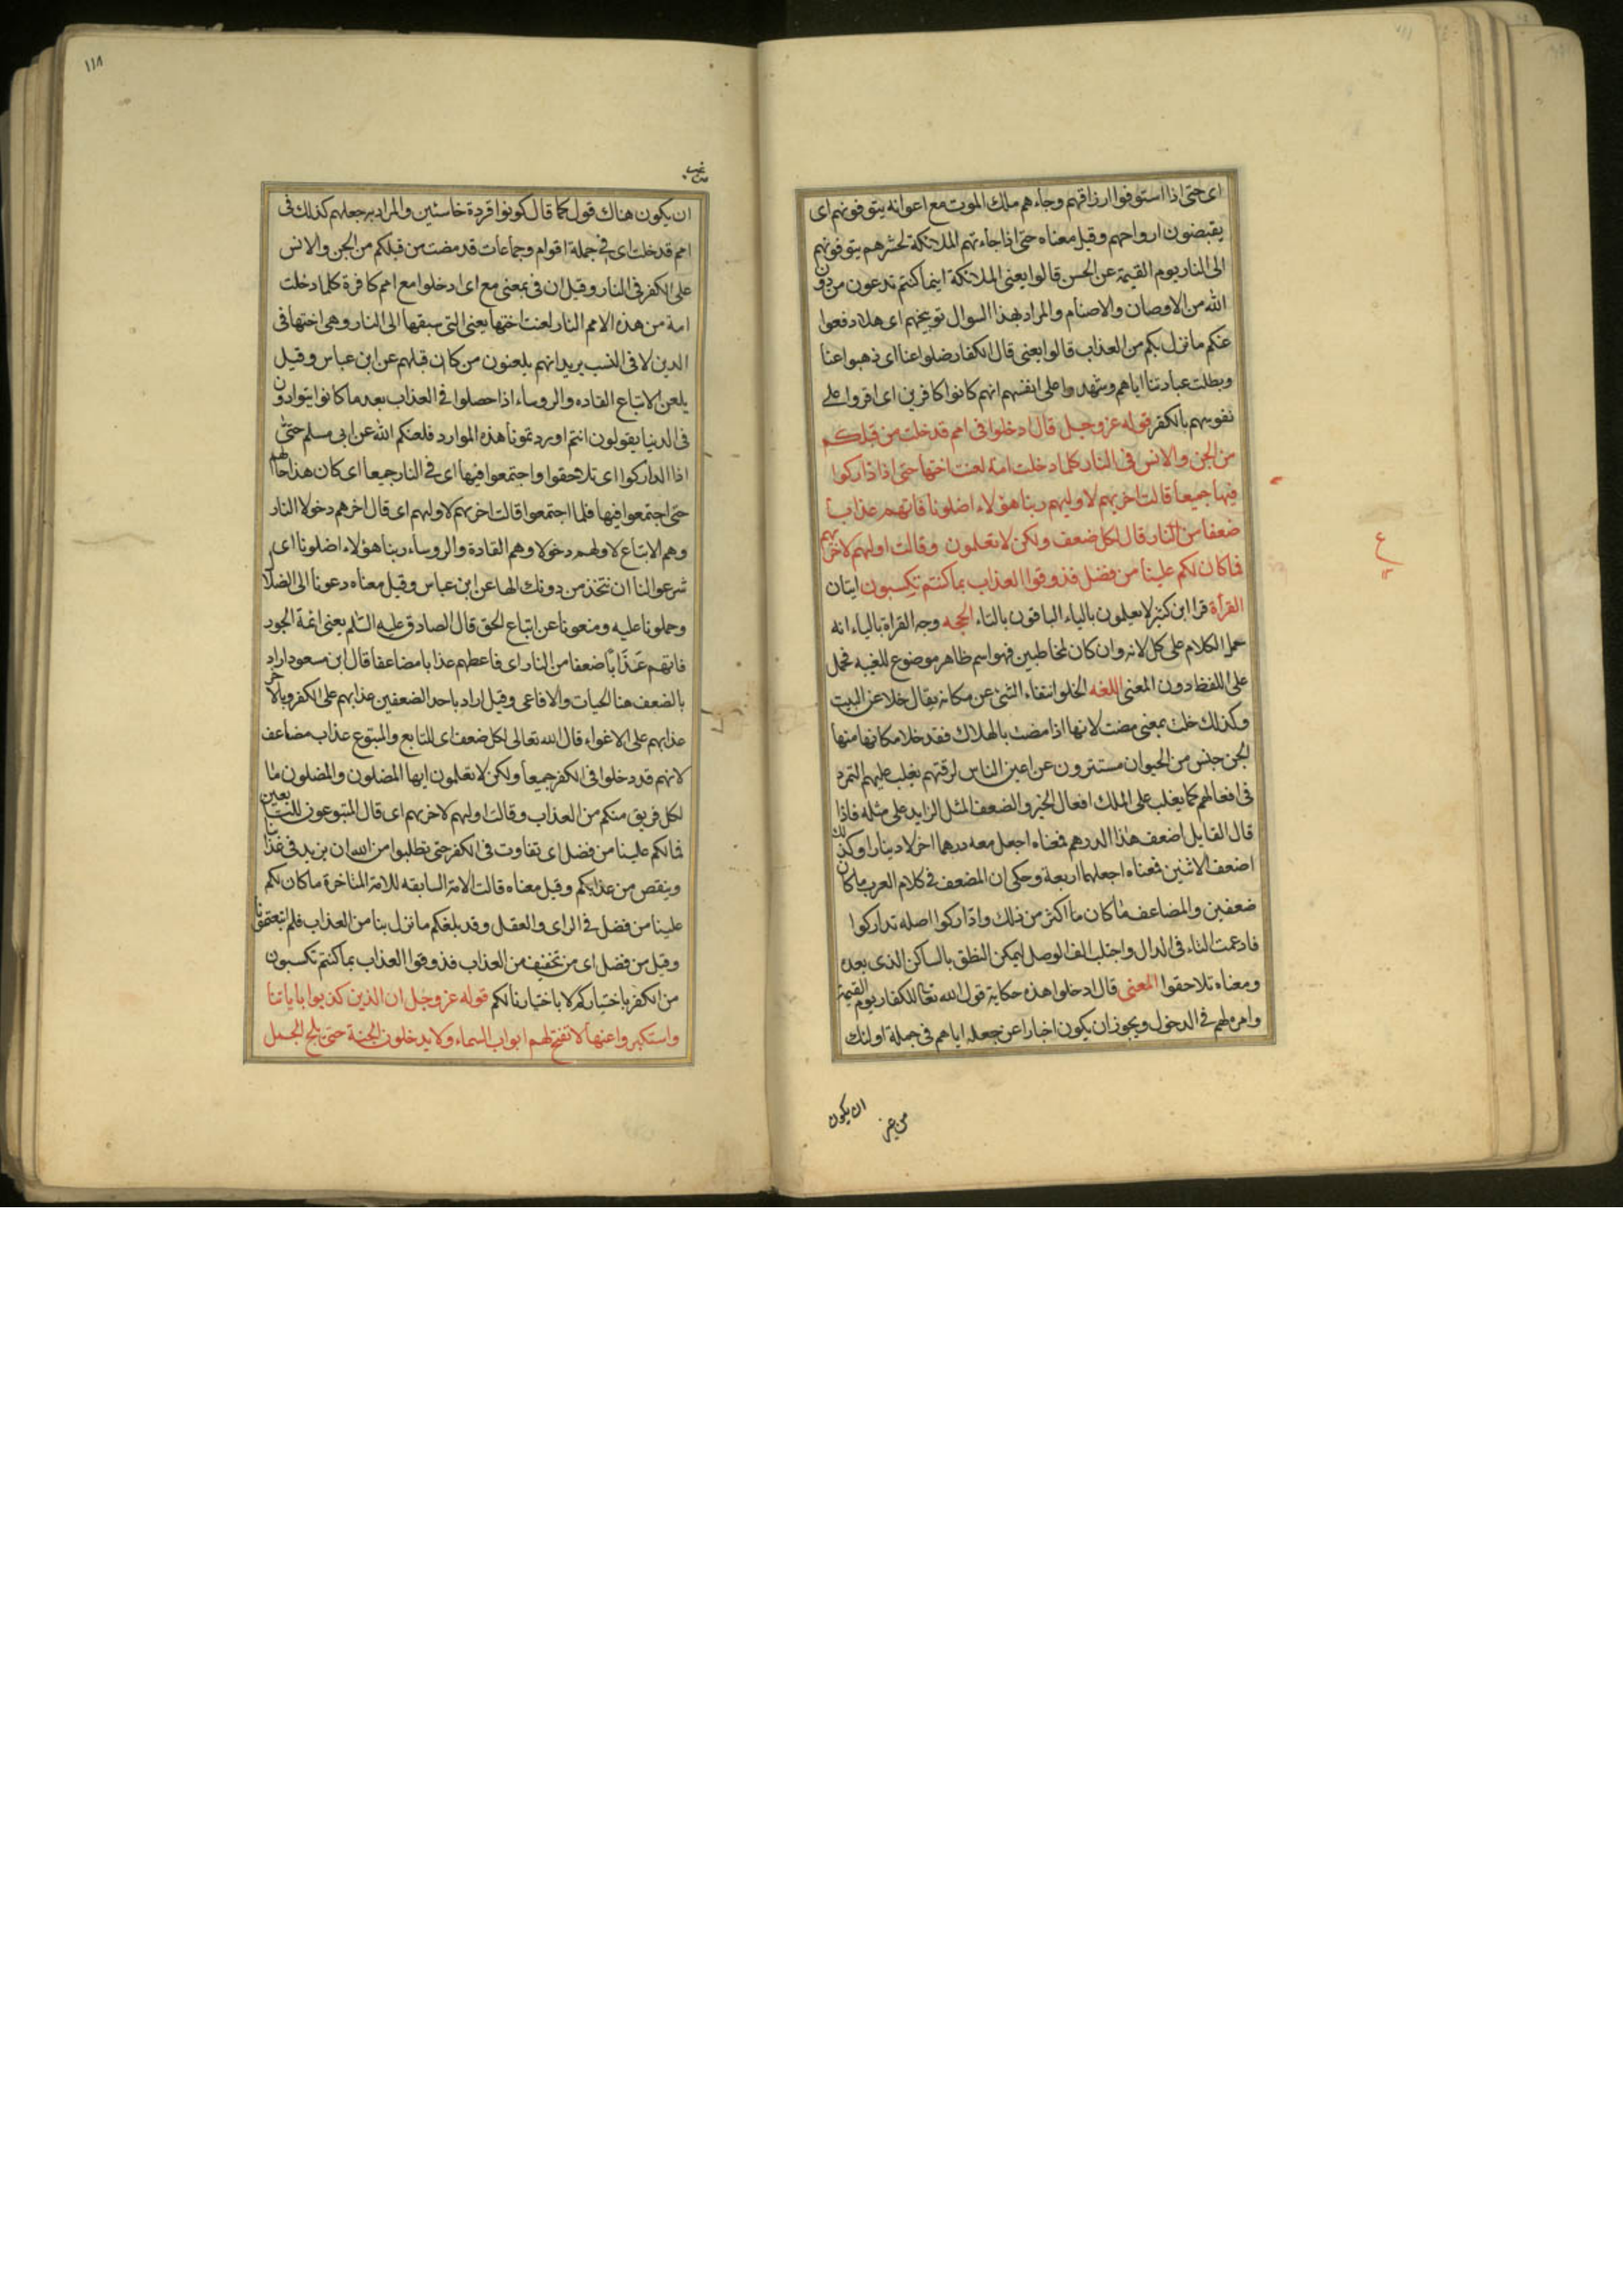 اى حتى اذا استوفوا ارزاقهم وجاءهم ملك الموت مع اعوانه يتوفونهم اى
يقبضون ارواحهم وقيل معناه حتى اذا جاءتهم الملائكة لحشرهم يتوفونهم
الى النار يوم القيمة عن الحسن قالوا يعنى الملائكة اينما كنتم تدعون من دون
الله من الاوصان والاصنام والمراد بهذا السوال توبيخهم اى هلا دفعوا
عنكم ما نزل بكم من العذاب قالوا يعنى قال الكفار ضلوا عنا اى ذهبوا عنا
وبطلت عبادتنا اياهم وشهدوا على انفسهم انهم كانوا كافرين اى اقروا على
نفوسهم بالكفر قوله عز وجل قال ادخلوا فى امم قد خلت من قبلكم
من الجن والانس فى النار كلما دخلت امة لعنت اختها حتى اذا ادّاركوا
فيها جميعا قالت اخريهم لاوليهم ربنا هؤلاء اضلونا فاتهم عذابا
ضعفا من النار قال لكل ضعف ولكن لا تعلمون وقالت اوليهم لاخريهم
فما كان لكم علينا من فضل فذوقوا العذاب بما كنتم تكسبون ايتان
القرأة قرا ابن كثير لا يعلمون بالياء الباقون بالتاء الحجه وجه القراة بالياء انه
حمل الكلام على كل لانه وان كان لمخاطبين فهو اسم ظاهر موضوع للغيبه فحمل
على اللفظ دون المعنى اللغه الخلو انتفاء الشئ عن مكانه يقال خلا عن البيت
وكذلك خلت بمعنى مضت لانها اذا مضت بالهلاك فقد خلا مكانها منها
الجن جنس من الحيوان مستترون عن اعين الناس لرقتهم يغلب عليهم التمرد
فى افعالهم كما يغلب على الملك افعال الخير والضعف المثل الزايد على مثله فاذا
قال القايل اضعف هذا الدرهم فمعناه اجعل معه درهما اخر لا دينارا وكذلك
اضعف الاثنين فمعناه اجعلهما اربعة وحكى ان المضعف فى كلام العرب ما كان
ضعفين والمضاعف ما كان ما اكثر من ذلك واداركوا اصله تداركوا
فادغمت التاء فى الدال واجتلب الف الوصل ليمكن النطق بالساكن الذى بعده
ومعناه تلاحقوا المعنى قال ادخلوا هذه حكاية قول الله تعالى للكفار يوم القيمة
وامره لهم فى الدخول ويجوز ان يكون اخبارا عن جعله اياهم فى جملة اولئك
من غير
ان يكون
١١٨
ان يكون هناك قول كما قال كونوا قردة خاسئين والمراد به جعلهم كذلك فى
امم قد خلت اى فى جملة اقوام وجماعات قد مضت من قبلكم من الجن والانس
على الكفر فى النار وقيل ان فى بمعنى مع اى ادخلوا مع امم كافرة كلما دخلت
امة من هذه الامم النار لعنت اختها يعنى التى سبقتها الى النار وهى اختها فى
الدين لا فى النسب يريد انهم يلعنون من كان قبلهم عن ابن عباس وقيل
يلعن الاتباع القاده والروساء اذا حصلوا فى العذاب بعد ما كانوا يتوادون
فى الدنيا يقولون انتم اوردتمونا هذه الموارد فلعنكم الله عن ابى مسلم حتى
اذا اداركوا اى تلاحقوا واجتمعوا فيها اى فى النار جميعا اى كان هذا حالهم
حتى اجتمعوا فيها فلما اجتمعوا قالت اخريهم لاوليهم اى قال اخرهم دخولا النار
وهم الاتباع لاولهم دخولا وهم القادة والروساء ربنا هؤلاء اضلونا اى
شرعوا لنا ان نتخذ من دونك الها عن ابن عباس وقيل معناه دعونا الى الضلال
وحملونا عليه ومنعونا عن اتباع الحق قال الصادق عليه السّلم يعنى ائمة الجور
فاتهم عَذَابًا ضعفا من النار اى فاعطهم عذابا مضاعفا قال ابن مسعود اراد
بالضعف هنا الحيات والافاعى وقيل اراد باحد الضعفين عذابهم على الكفر وبالاخر
عذابهم على الاغواء قال الله تعالى لكل ضعف اى للتابع والمتبوع عذاب مضاعف
لانهم قد دخلوا فى الكفر جميعا ولكن لا تعلمون ايها المضلون والمضلون ما
لكل فريق منكم من العذاب وقالت اوليهم لاخريهم اى قال المتبوعون للتابعين
فما لكم علينا من فضل اى تفاوت فى الكفر حتى تطلبوا من الله ان يزيد فى عذابنا
وينقص من عذابكم وقيل معناه قالت الامة السابقه للامة المتاخرة ما كان لكم
علينا من فضل فى الراى والعقل وقد بلغكم ما نزل بنا من العذاب فلم اتبعتمونا
وقيل من فضل اى من تخفيف من العذاب فذوقوا العذاب بما كنتم تكسبون
من الكفر باختياركم لا باختيارنا لكم قوله عز وجل ان الذين كذبوا باياتنا
واستكبروا عنها لا تفتح لهم ابواب السماء ولا يدخلون الجنة حتى يلج الجمل